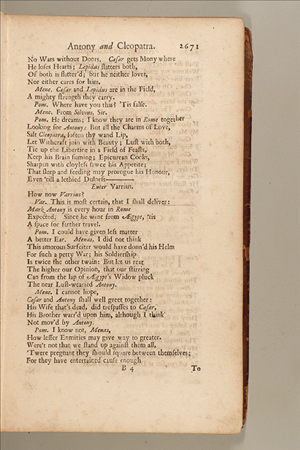 Antony and Cleopatra. 2671
No Wars without Doors. Cæsar gets Mony where
He loses Hearts; Lepidus flatters both,
Of both is flatter'd; but he neither loves,
Nor either cares for him.
Mene. Cæsar and Lepidus are in the Field,
A mighty strength they carry.
Pom. Where have you this? 'Tis false.
Mene. From Silvius, Sir.
Pom. He dreams; I know they are in Rome together
Looking for Antony: But all the Charms of Love,
Salt Cleopatra, soften thy wand Lip,
Let Witchcraft join with Beauty; Lust with both,
Tie up the Libertine in a Field of Feasts,
Keep his Brain fuming; Epicurean Cooks,
Sharpen with cloyless sawce his Appetite;
That sleep and feeding may prorogue his Honour,
Even 'till a Lethied Dulness———
Enter Varrius.
How now Varrius?
Var. This is most certain, that I shall deliver:
Mark Antony is every hour in Rome
Expected; Since he went from Ægypt, 'tis
A space for further travel.
Pom. I could have given less matter
A better Ear. Menas, I did not think
This amorous Surfeiter would have donn'd his Helm
For such a petty War; his Soldiership
Is twice the other twain: But let us rear
The higher our Opinion, that our stirring
Can from the lap of Ægypt's Widow pluck
The near Lust-wearied Antony.
Mene. I cannot hope,
Cæsar and Antony shall well greet together:
His Wife that's dead, did trespasses to Cæsar,
His Brother warr'd upon him, although I think
Not mov'd by Antony.
Pom. I know not, Menas,
How lesser Enmities may give way to greater.
Were't not that we stand up against them all,
'Twere pregnant they should square between themselves;
For they have entertained cause enough
B 4 To